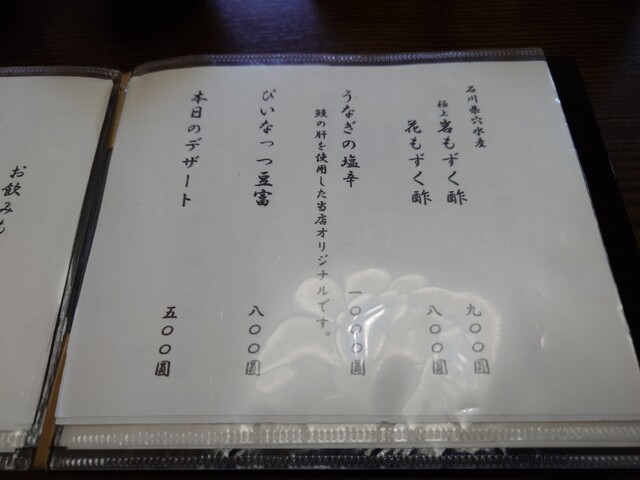 石川県穴水産
極上 岩もずく酢 九〇〇圓
花もずく酢 八〇〇圓
うなぎの塩辛 一〇〇〇圓
鰻の肝を使用した当店オリジナルです。
ぴいなっつ豆富 八〇〇圓
本日のデザート 五〇〇圓
お飲みも